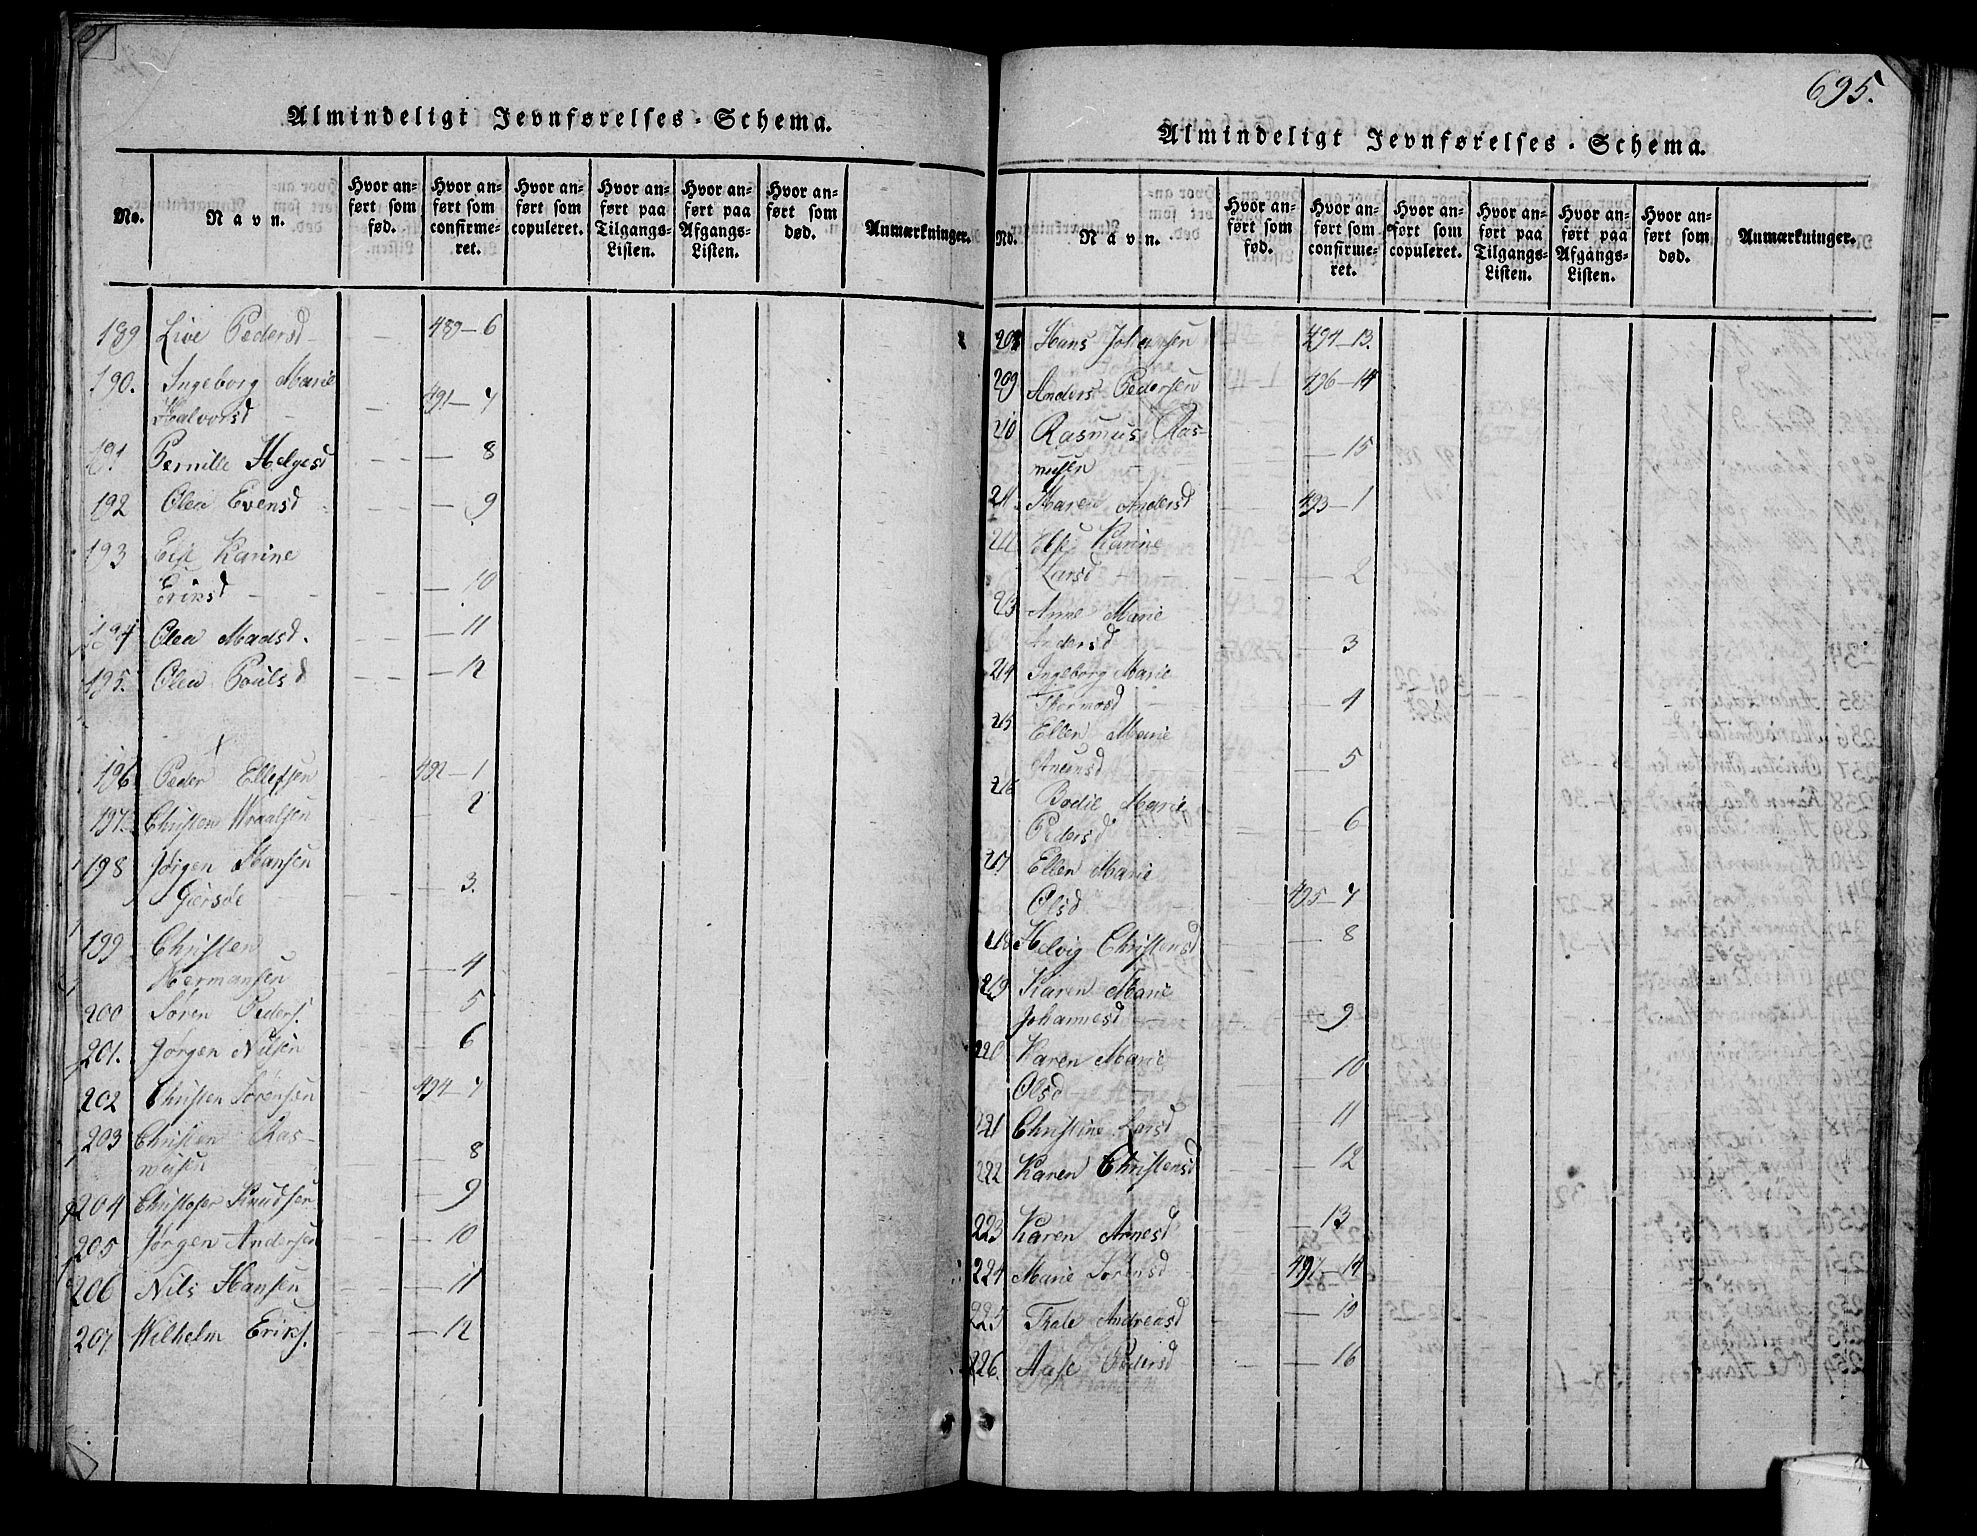 Almindeligt Jevnførelses-Schema.
No.
Navn.
Hvor anført som fød.
Hvor anført som confirmeret.
Hvor anført som copuleret.
Hvor anført paa Tilgangs-Listen.
Hvor anført paa Afgangs-Listen.
Hvor anført som død.
Anmærkninger.
189 Live Pedersd 489-6
190. Ingeborg Marie
Halvorsd 491-7
191 Pernille Helgesd 8
192 Olea Evensd 9
193 Else Karine
Eriksd 10
194 Olea Madsd. 11
195. Olea Poulsd 12
196 Peder Ellefsen 492-1
197 Christen Wraalsen 2
198 Jørgen Hansen
Gjersøe 3.
199 Christen
Hermansen 4
200 Søren Peders. 5
201. Jørgen Nilsen 6
202 Christen Sørensen 494-7
203 Christen Ras-
musen 8
204 Christofer Knudsen 9
205 Jørgen Andersen 10
206 Nils Hansen 11
207 Wilhelm Eriks. 12
695.
Almindeligt Jevnførelses-Schema.
No.
Navn.
Hvor anført som fød.
Hvor anført som confirmeret.
Hvor anført som copuleret.
Hvor anført paa Tilgangs-Listen.
Hvor anført paa Afgangs-Listen.
Hvor anført som død.
Anmærkninger.
208 Hans Johansen 494-13.
209 Anders Pedersen 496-14
210 Rasmus Ras-
musen 15
211 Maren Andersd 493-1
212 Else Karine
Larsd 2
213 Anne Marie
Andersd 3
214 Ingeborg Marie
Thormosd 4
215 Ellen Marie
5
216 Bodil Marie
Pedersd 6
217 Ellen Marie
Olsd 495-7
218 Helvig Christensd 8
219 Karen Marie
Johannesd 9
220 Karen Marie
Olsd 10
221 Christine Larsd 11
222 Karen Christensd 12
223 Karen Arnesd 13
224 Marie Sørensd 497-14
225 Thale Andreasd 15
226. Aase Pedersd 16